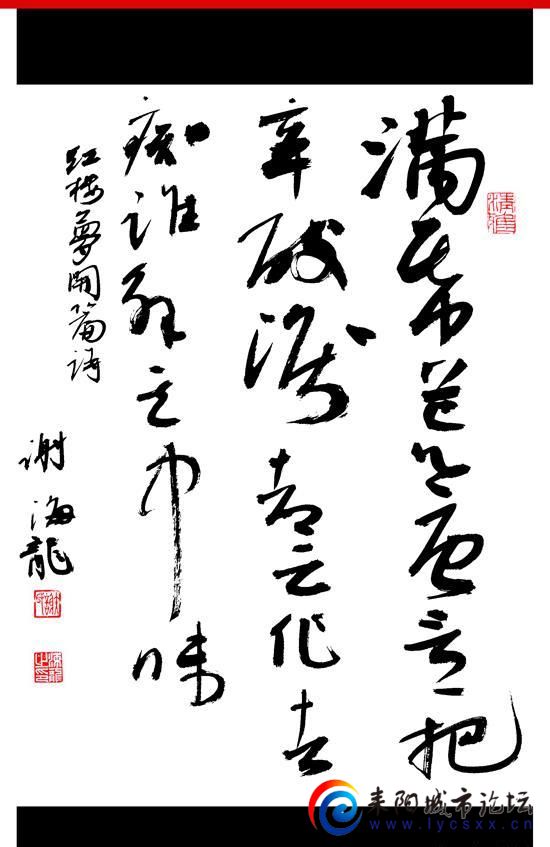 满帋荒唐言一把
辛酸淚都云作者
痴谁解其中味
红楼夢開篇诗
谢海龍
耒阳城市论坛
www.lycsxx.cn